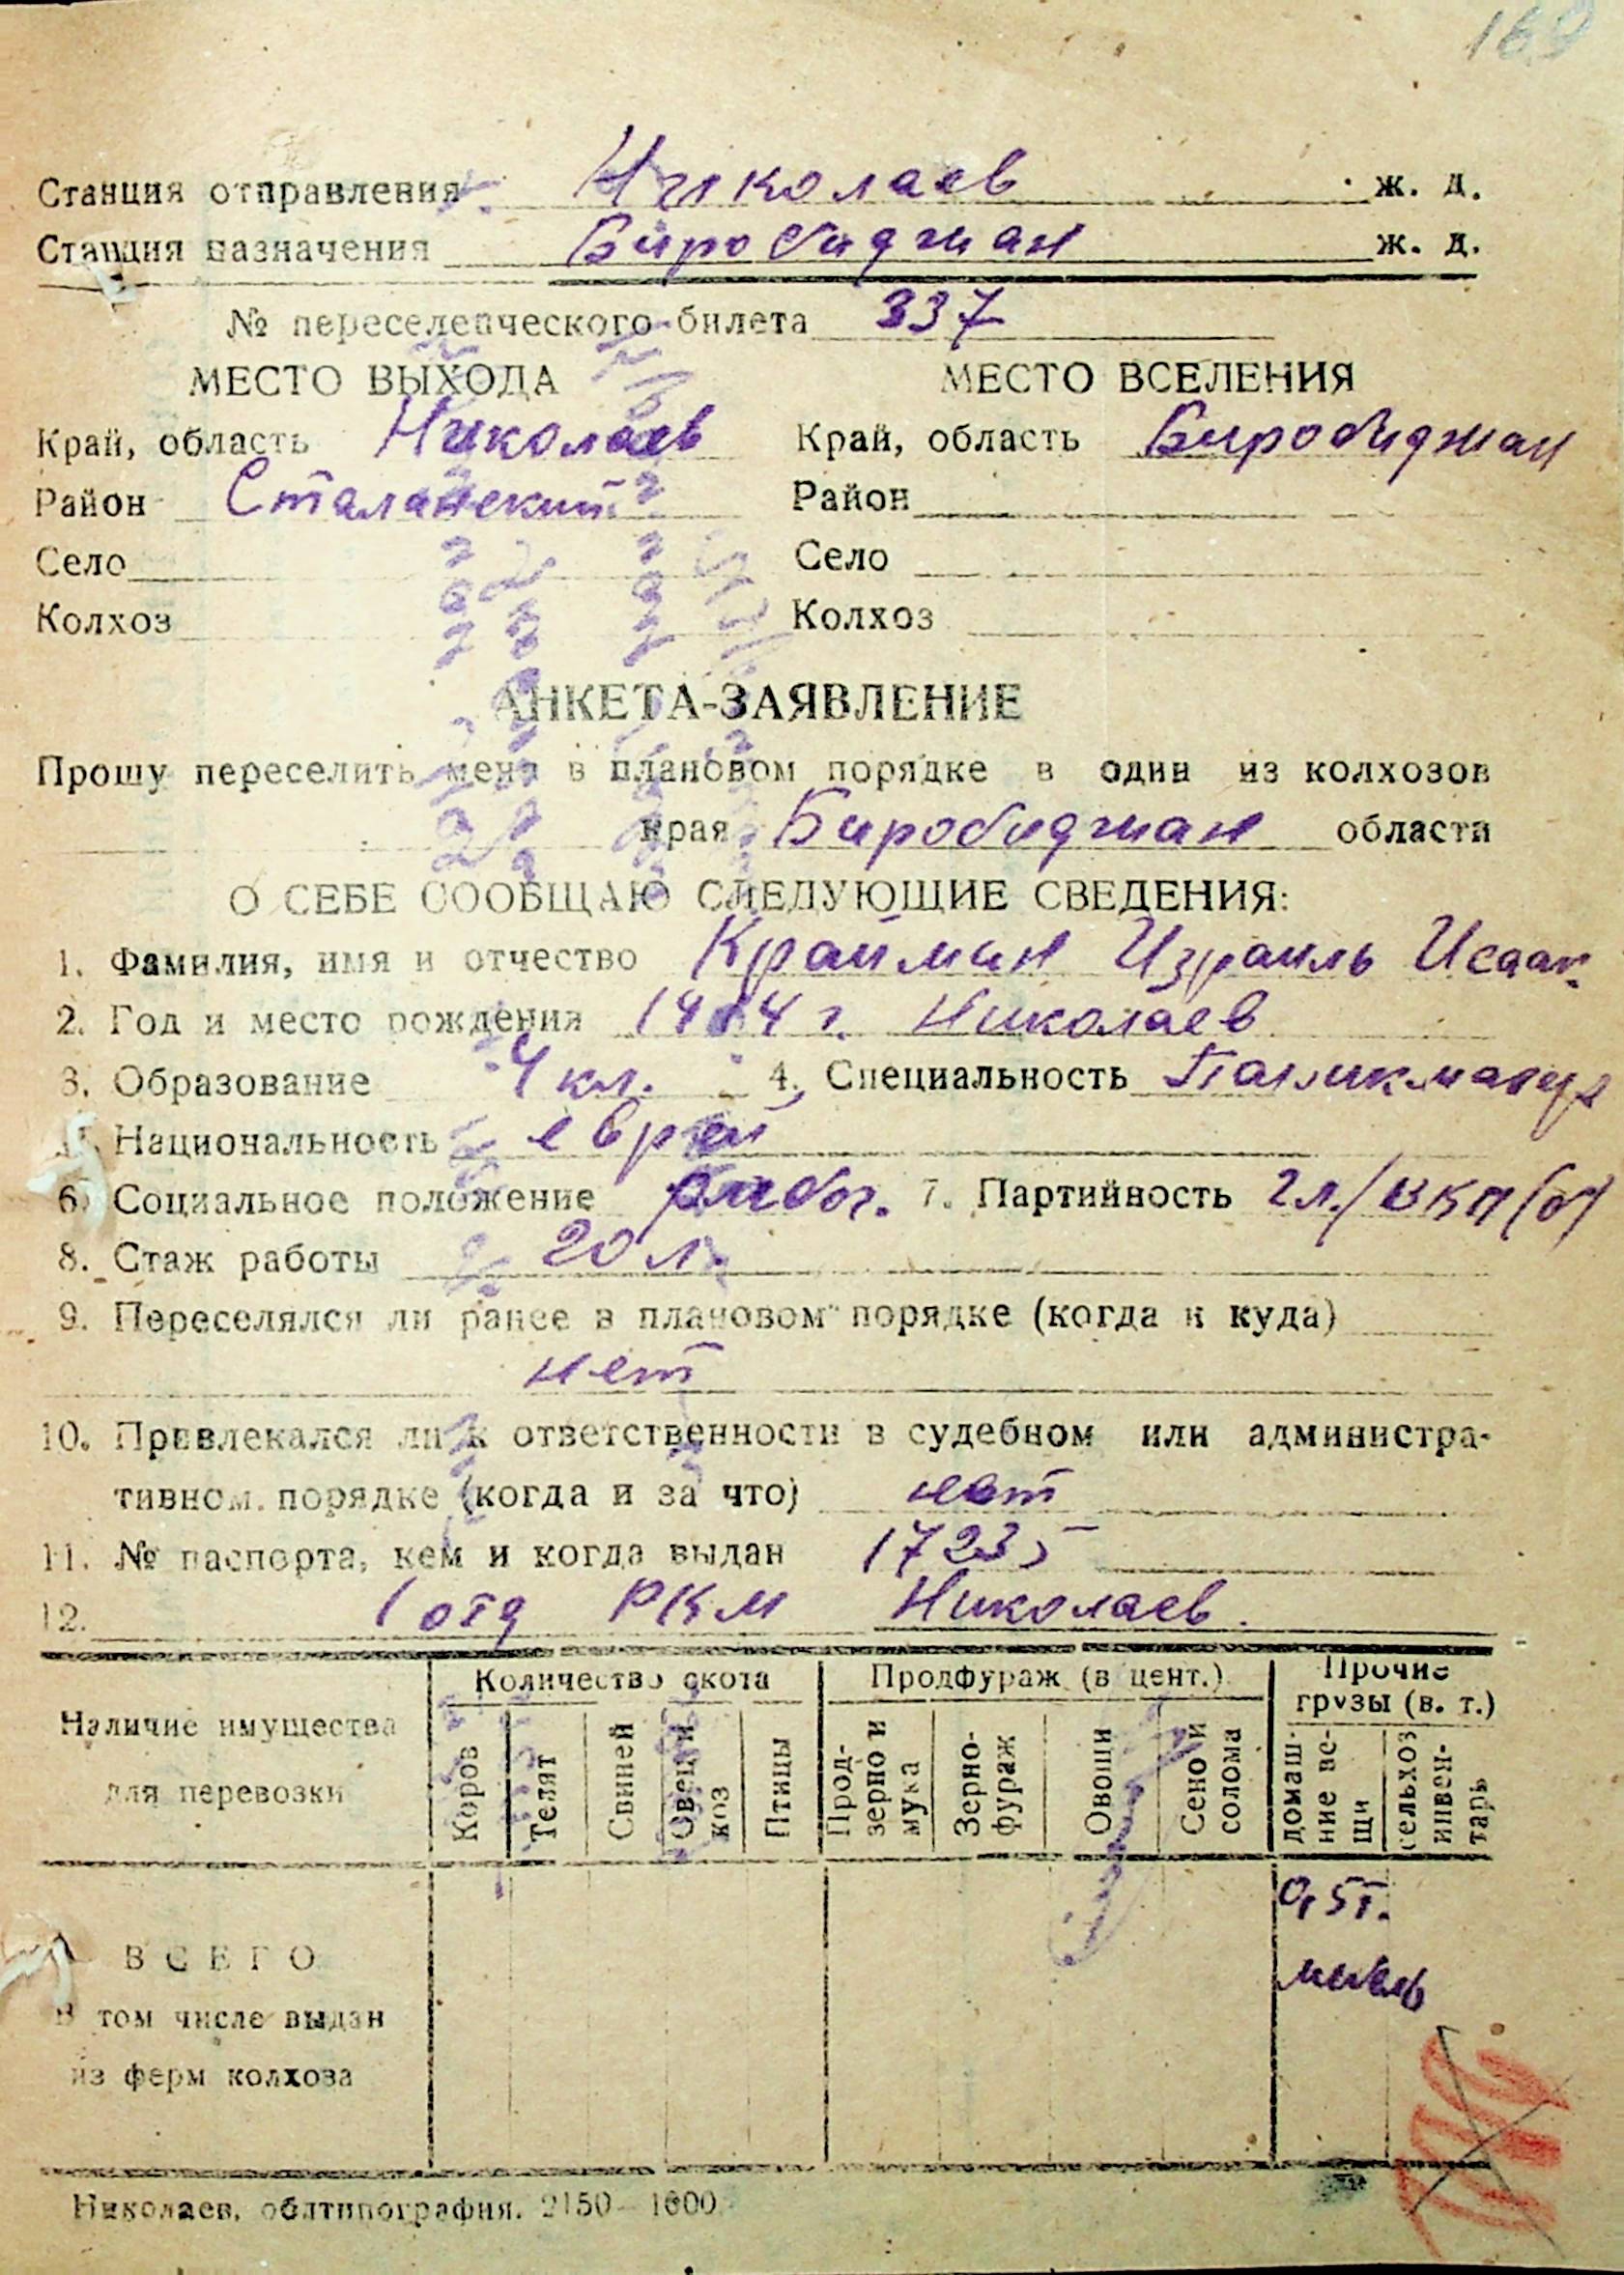 169
Станция отправления Николаев ж. д.
Станция назначения Биробиджан ж. д.
№ переселенческого билета 337
МЕСТО ВЫХОДА МЕСТО ВСЕЛЕНИЯ
Край, область Николаев Край, область Биробиджан
Район Сталинский Район
Село Село
Колхоз Колхоз
АНКЕТА-ЗАЯВЛЕНИЕ
Прошу переселить меня в плановом порядке в один из колхозов
края Биробиджан области
О СЕБЕ СООБЩАЮ СЛЕДУЮЩИЕ СВЕДЕНИЯ:
1. Фамилия, имя и отчество Крайман Израиль Исаак.
2. Год и место рождения г. Николаев
3. Образование 4 кл. 4. Специальность
Национальность еврей
6. Социальное положение рабоч. 7. Партийность ВКП(б)
8. Стаж работы 20 л.
9. Переселялся ли ранее в плановом порядке (когда и куда)
нет
10. Привлекался ли к ответственности в судебном или администра-
тивном порядке (когда и за что) нет
11. № паспорта, кем и когда выдан 17235
12. 1 отд РКМ Николаев.
Наличие имущества
для перевозки
Количество скота
Коров
Телят
Свиней
Овец и
коз
Птицы
Продфураж (в цент.)
Прод-
зерно и
мука
Зерно-
фураж
Овощи
Сено и
солома
Прочие
грузы (в. т.)
домаш-
ние ве-
щи
сельхоз
инвен-
тарь
ВСЕГО 0,5т.
В том числе выдан
из ферм колхоза
Николаев, облтипография. 2150—1000